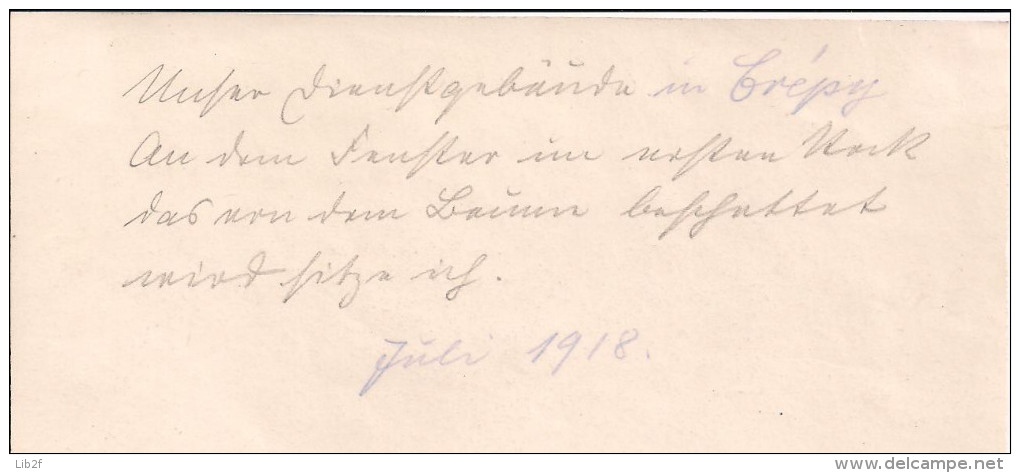 Unser Dienstgebäude in Crépy
An dem Fenster im ersten Stock
das von dem Baume beschattet
wird sitze ich.
Juli 1918.
Lib2f
www.delcampe.net